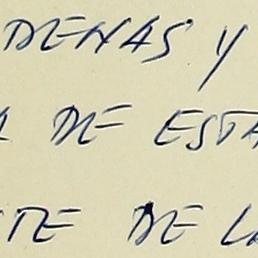 DENAS Y
A DE ESTA
STE DE LA